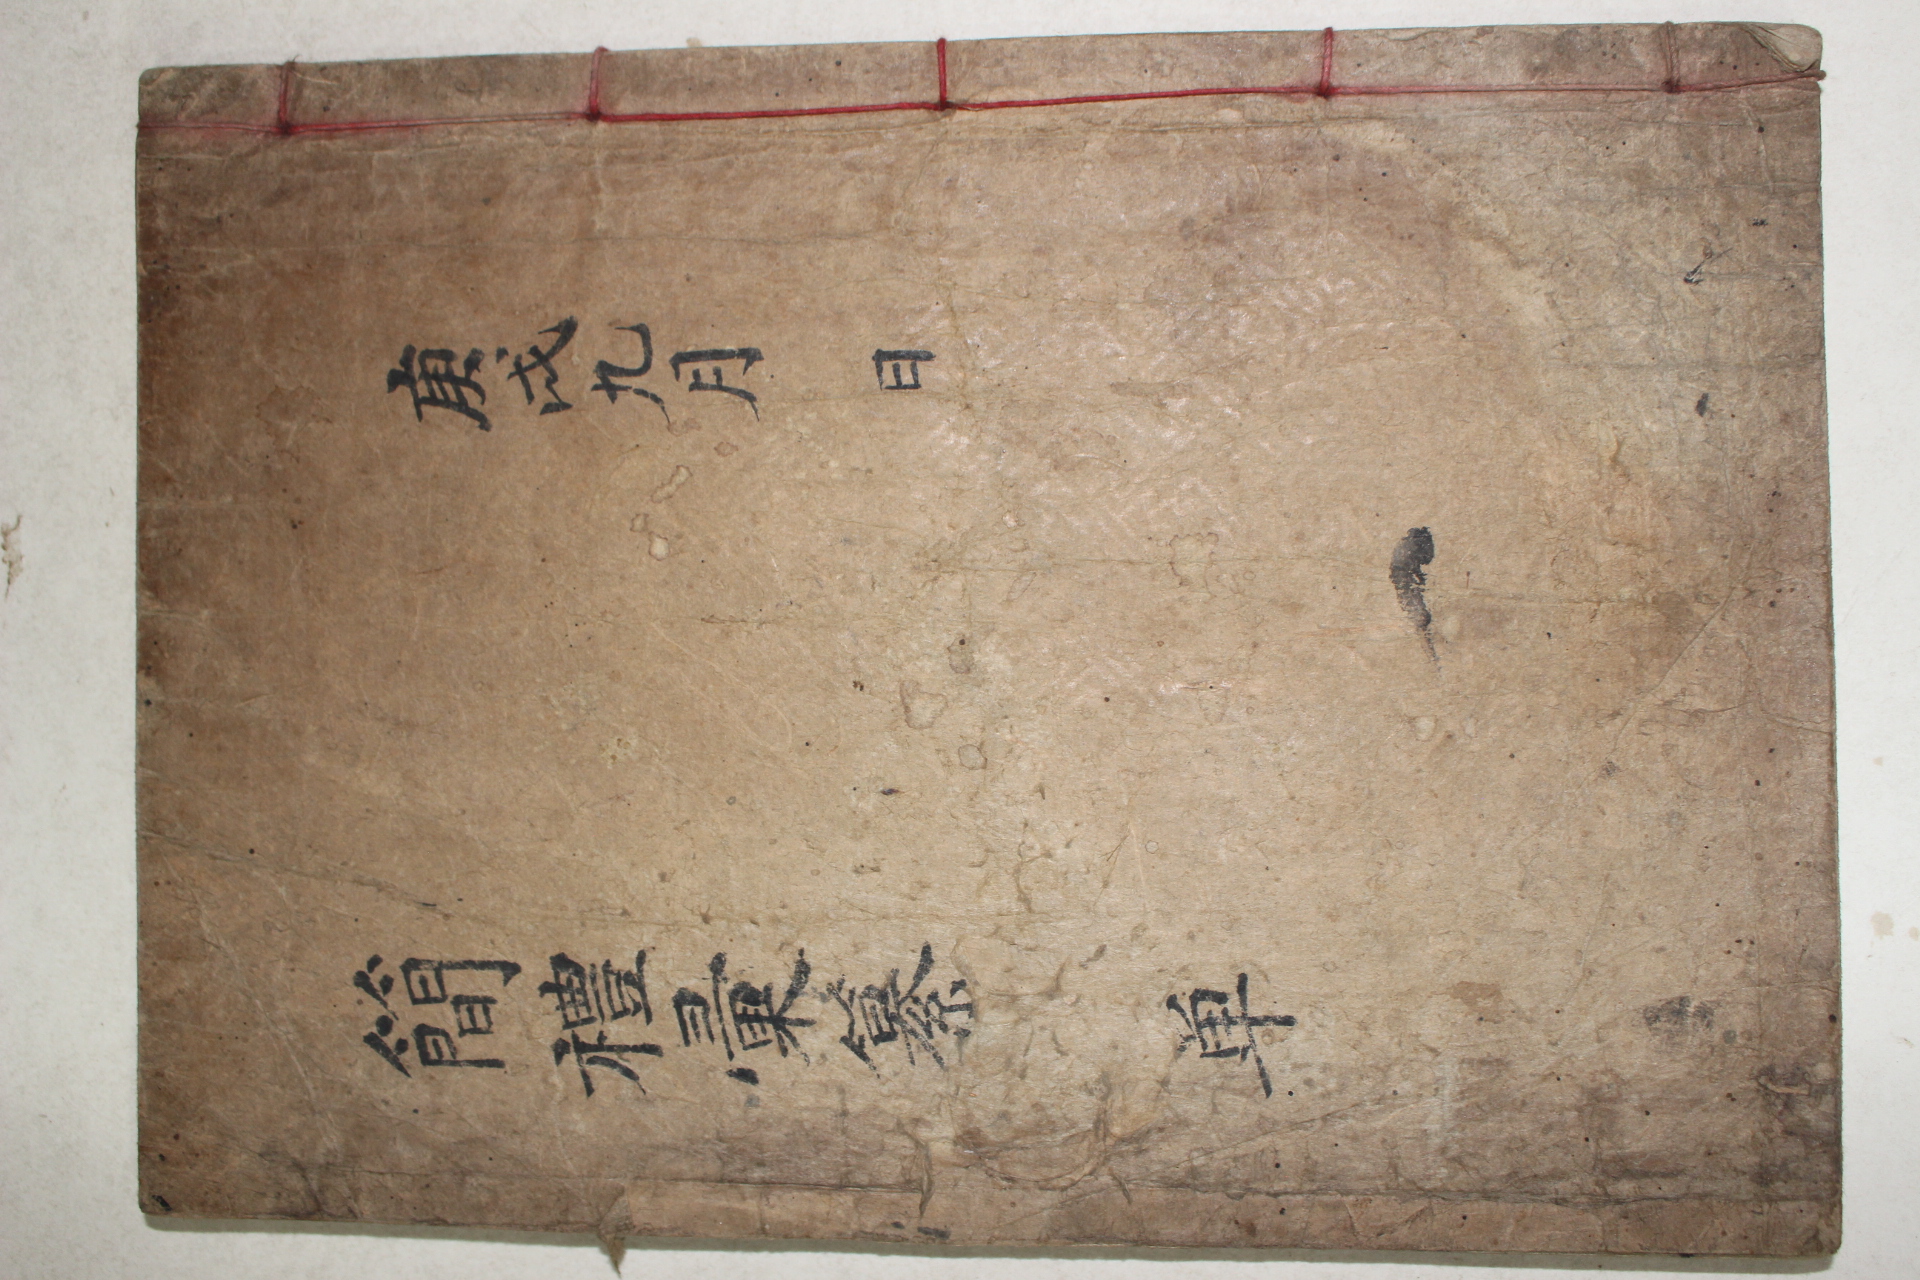 庚戌九月 日
簡禮彙纂 單